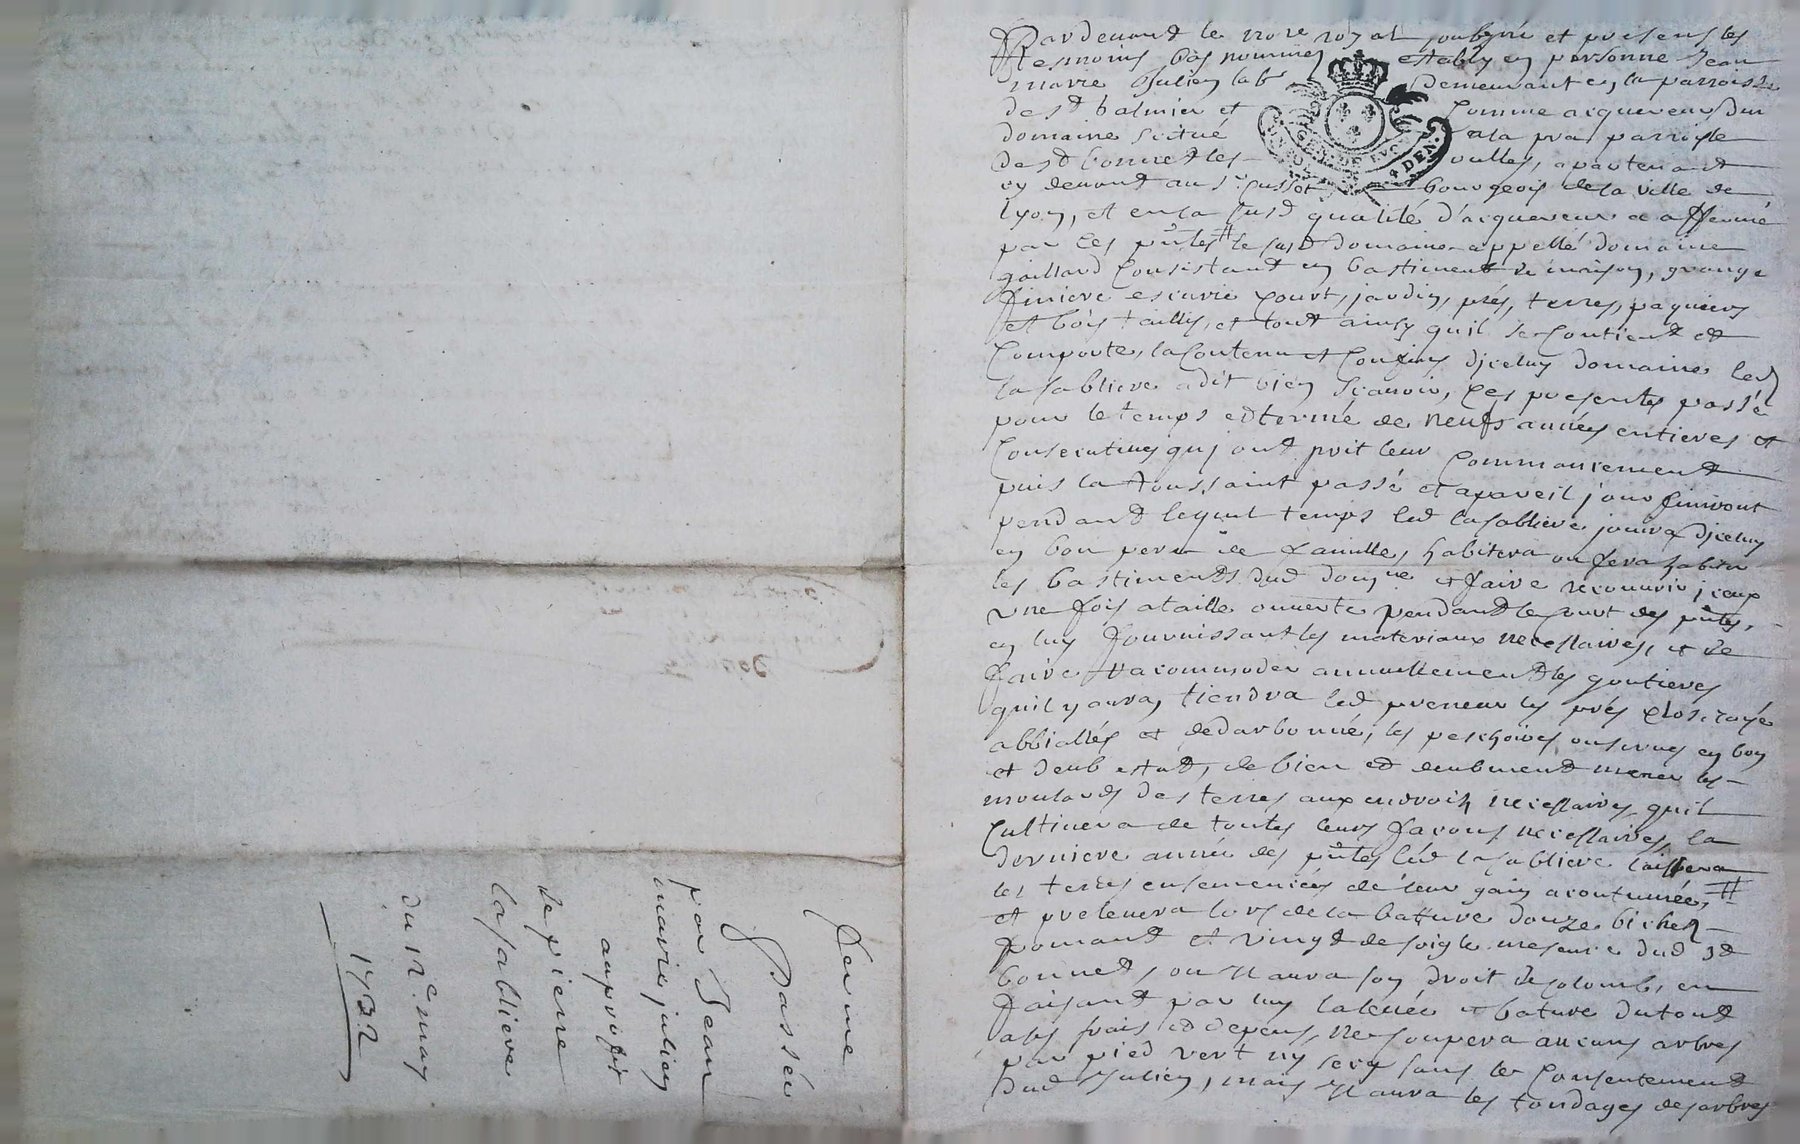 Pardevant le no.re royal soubsigné et presens les
tesmoins bas nommez establÿ en personne Jean
marie Jullien lab.r demeurant en la parroisse
de s.t balmier et comme acquereur du
domaine scitué a la parroisse
de s.t bonnet les oulles, apartenant
cy devant au s.r bourgeois de la ville de
lyon, et en la susd qualité d'acquereur a affermé
par les p.ntes # le susd domaine appellé domaine
gaillard Consistant en bastiment de maison, grange
finiere escurie Court, jardin, prés, terres, paquiers
et bois taillis, et tout ainsy quil se Contient et
Comporte, la Contenu et Confins diceluy domaine led
lasabliere a dit bien scavoir, Ces presentes passé
pour le temps et terme de neufs années entieres et
Consecutives quj ont prit leur Commancement
puis la toussaint passé et apareil jour finiront
pendant lequel temps led lasabliere jouira diceluy
en bon pere de famille, habitera ou fera habiter
les bastiments dud dom.ne et faire recouvrir iceux
une fois a taille ouverte pendant le court des p.ntes,
en luy fournissant les materiaux necessaires, et de
faire racommoder annuellement les goutieres
quil y aura, tiendra led preneur les prés clos, rasé
abbiallés et dedarbonné, les peschoires ou serves en bon
et deub estat, de bien et deubment mener les
moulards des terres aux endroits necessaires, quil
Cultivera de toutes leurs facons necessaires, la
derniere année des p.ntes led lasabliere laissera
les terres ensemencées de leur gain acoutumée, #
et prelevera lors de la bature douze bichets
fromant et vingt de soigle mesure dud st
bonnet, ou Il aura son droit de Colomb, en
faisant par luy la levée et bature du tout
a ses frais et depens, ne Coupera aucuns arbres
par pied vert ny secq sans le Consentement
dud Jullien, mais Il aura les tondages des arbres
ferme
passée
par Jean
marie jullien
au profit
de pierre
lasabliere
du 12.e may
1732